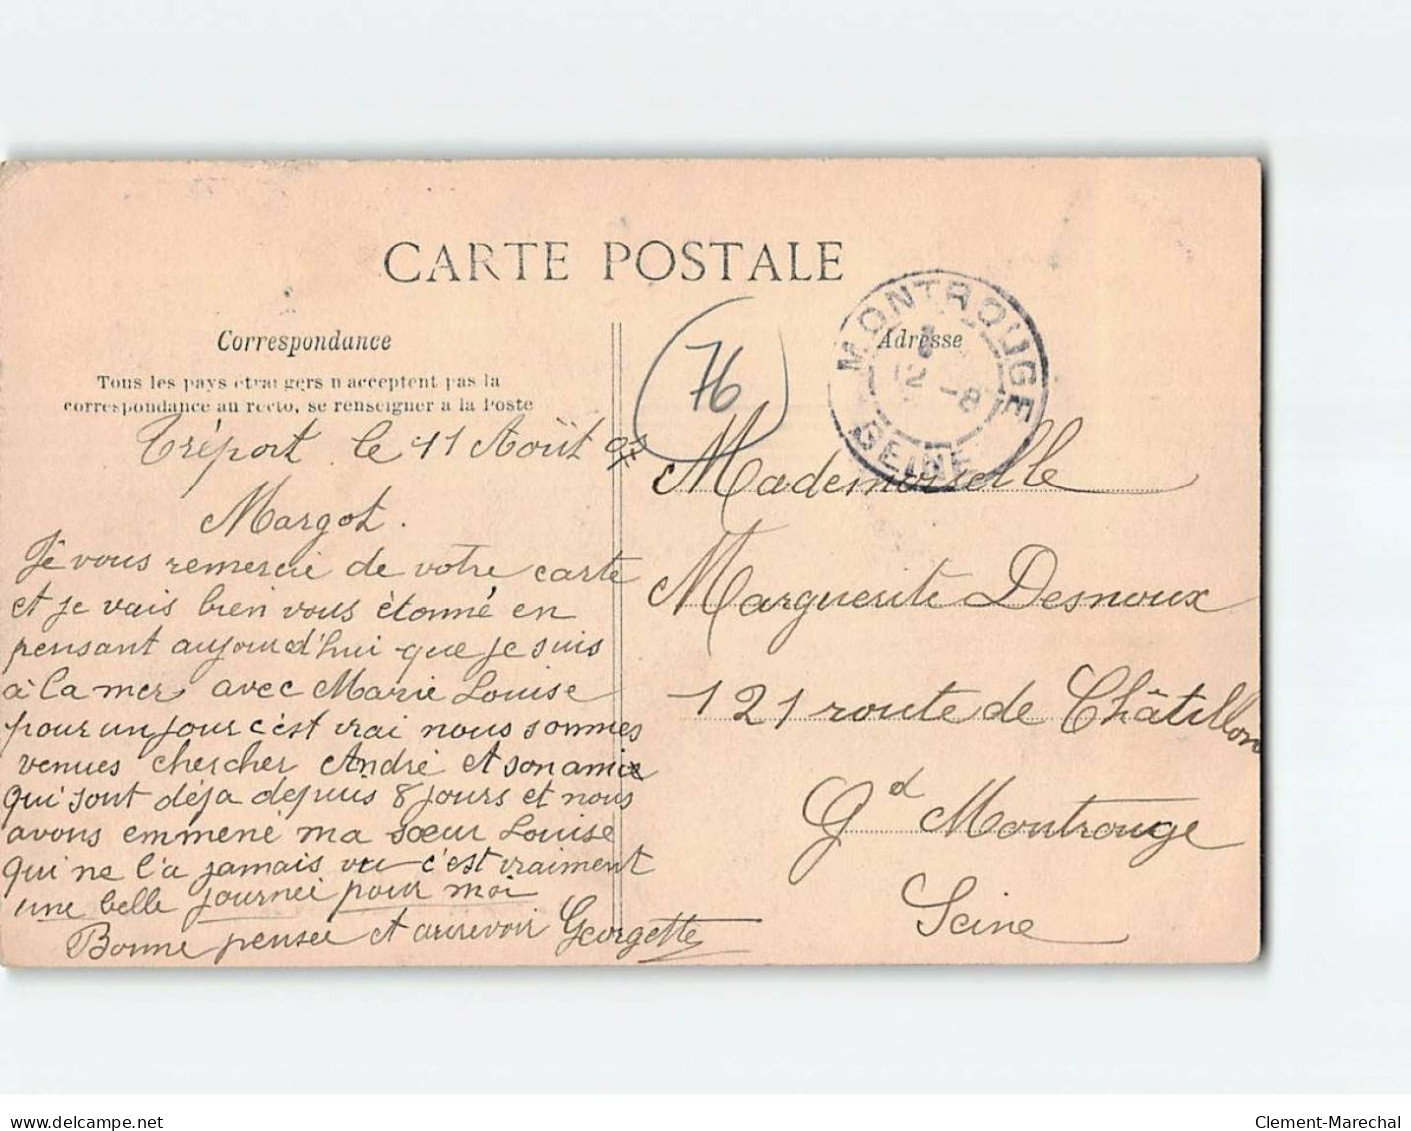 CARTE POSTALE
Correspondance
Tous les pays étrangers n'acceptent pas la
correspondance au recto, se renseigner à la Poste
Adresse
MONTROUGE
12 -8
SEINE
76
Tréport le 11 Août
Margot.
Je vous remercie de votre carte
et je vais bien vous étonné en
pensant aujourd'hui que je suis
à la mer avec Marie Louise
pour un jour c'est vrai nous sommes
venues chercher André et son amie
qui sont déja depuis 8 jours et nous
avons emmené ma sœur Louise
qui ne l'a jamais vu c'est vraiment
une belle journeé pour moi
Bonne pensée et aurevoir Georgette
Mademoiselle
Marguerite Desnoux
121 route de Châtillon
Gd Montrouge
Seine
delcampe.net
Clement-Marechal